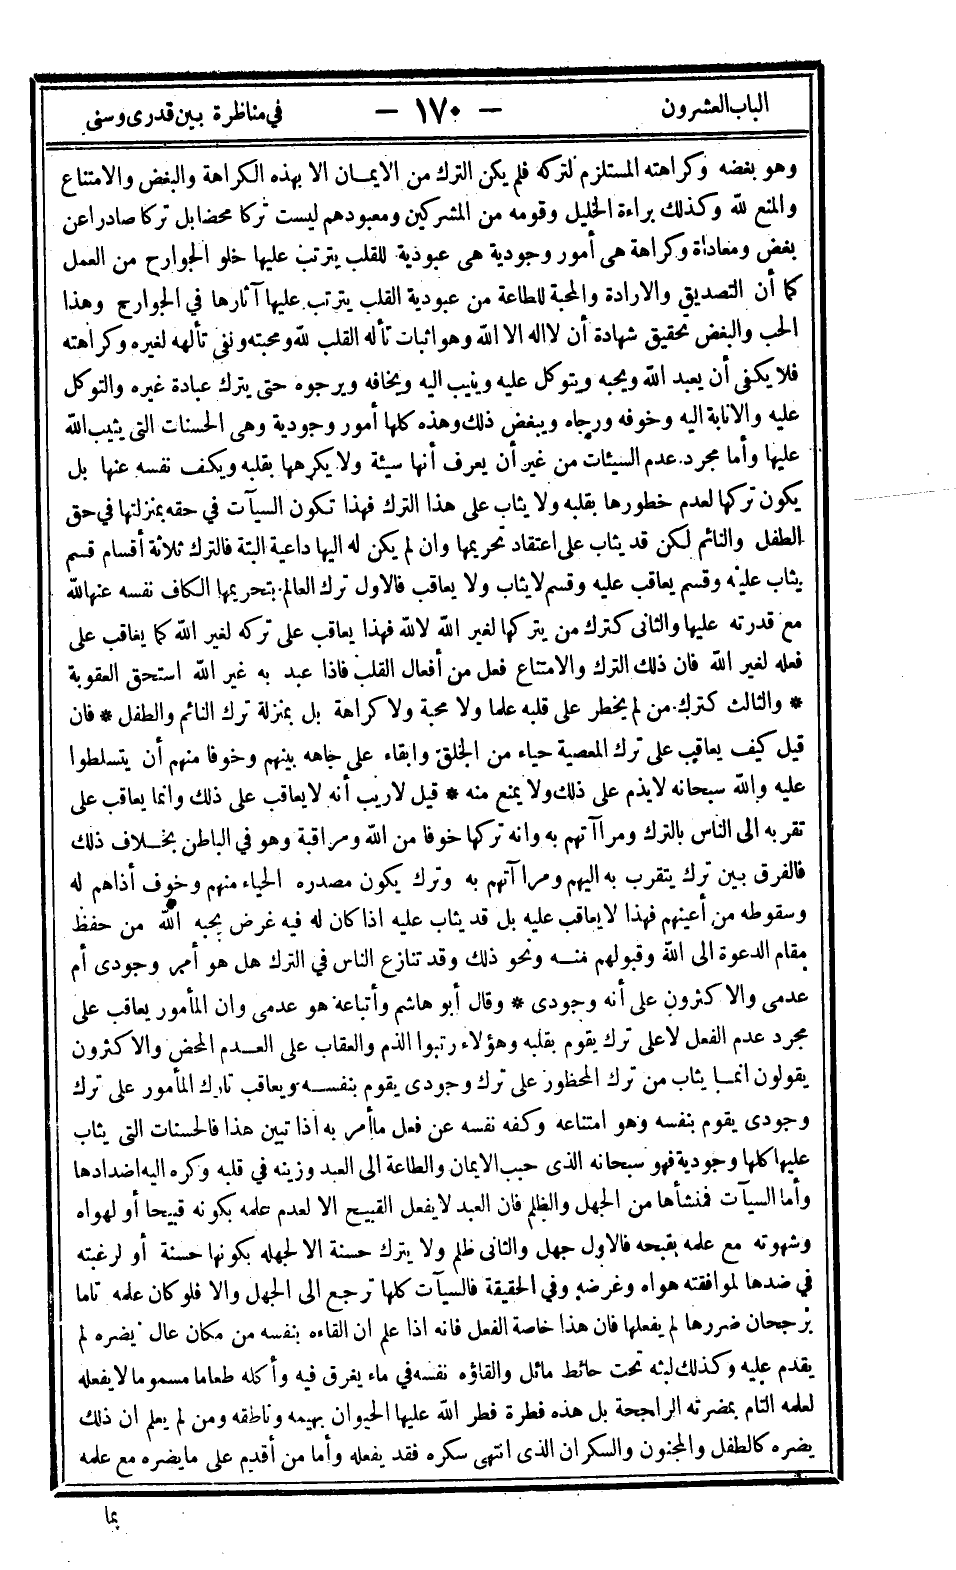 الباب العشرون — ١٧٠ — في مناظرة بين قدرى وسنى
وهو بغضه وكراهته المستلزم لتركه فلم يكن الترك من الايمان الا بهذه الكراهة والبغض والامتناع
والمنع لله وكذلك براءة الخليل وقومه من المشركين ومعبودهم ليست تركا محضا بل تركا صادرا عن
بغض ومعاداة وكراهة هى أمور وجودية هى عبودية للقلب يترتب عليها خلو الجوارح من العمل
كما أن التصديق والارادة والمحبة للطاعة من عبودية القلب يترتب عليها آثارها في الجوارح وهذا
الحب والبغض تحقيق شهادة أن لا اله الا الله وهو اثبات تأله القلب لله ومحبته ونفى تألهه لغيره وكراهته
فلا يكفى أن يعبد الله ويحبه ويتوكل عليه وينيب اليه ويخافه ويرجوه حتى يترك عبادة غيره والتوكل
عليه والانابة اليه وخوفه ورجاه ويبغض ذلك وهذه كلها أمور وجودية وهى الحسنات التى يثيب الله
عليها وأما مجرد عدم السيئات من غير أن يعرف أنها سيئة ولا يكرهها بقلبه ويكف نفسه عنها بل
يكون تركها لعدم خطورها بقلبه ولا يثاب على هذا الترك فهذا تكون السيآت في حقه بمنزلتها في حق
الطفل والنائم لكن قد يثاب على اعتقاد تحريمها وان لم يكن له اليها داعية البتة فالترك ثلاثة أقسام قسم
يثاب عليه وقسم يعاقب عليه وقسم لا يثاب ولا يعاقب فالاول ترك العالم بتحريمها الكاف نفسه عنها لله
مع قدرته عليها والثانى كترك من يتركها لغير الله لا لله فهذا يعاقب على تركه لغير الله كما يعاقب على
فعله لغير الله فان ذلك الترك والامتناع فعل من أفعال القلب فاذا عبد به غير الله استحق العقوبة
* والثالث كترك من لم يخطر على قلبه علما ولا محبة ولا كراهة بل بمنزلة ترك النائم والطفل * فان
قيل كيف يعاقب على ترك المعصية حياء من الخلق وابقاء على جاهه بينهم وخوفا منهم أن يتسلطوا
عليه والله سبحانه لا يذم على ذلك ولا يمنع منه * قيل لا ريب أنه لا يعاقب على ذلك وانما يعاقب على
تقربه الى الناس بالترك ومراآتهم به وانه تركها خوفا من الله ومراقبة وهو في الباطن بخلاف ذلك
فالفرق بين ترك يتقرب به اليهم ومراآتهم به وترك يكون مصدره الحياء منهم وخوف أذاهم له
وسقوطه من أعينهم فهذا لا يعاقب عليه بل قد يثاب عليه اذا كان له فيه غرض يحبه الله من حفظ
مقام الدعوة الى الله وقبولهم منه ونحو ذلك وقد تنازع الناس في الترك هل هو أمر وجودى أم
عدمى والاكثرون على أنه وجودى * وقال أبو هاشم وأتباعه هو عدمى وان المأمور يعاقب على
مجرد عدم الفعل لا على ترك يقوم بقلبه وهؤلاء رتبوا الذم والعقاب على العدم المحض والاكثرون
يقولون انما يثاب من ترك المحظور على ترك وجودى يقوم بنفسه ويعاقب تارك المأمور على ترك
وجودى يقوم بنفسه وهو امتناعه وكفه نفسه عن فعل ما أمر به اذا تبين هذا فالحسنات التى يثاب
عليها كلها وجودية فهو سبحانه الذى حبب الايمان والطاعة الى العبد وزينه في قلبه وكره اليه اضدادها
وأما السيآت فمنشأها من الجهل والظلم فان العبد لا يفعل القبيح الا لعدم علمه بكونه قبيحا أو لهواه
وشهوته مع علمه بقبحه فالاول جهل والثانى ظلم ولا يترك حسنة الا لجهله بكونها حسنة أو لرغبته
في ضدها لموافقته هواه وغرضه وفي الحقيقة فالسيآت كلها ترجع الى الجهل والا فلو كان علمه تاما
برجحان ضررها لم يفعلها فان هذا خاصة الفعل فانه اذا علم ان القاءه بنفسه من مكان عال يضره لم
يقدم عليه وكذلك لبثه تحت حائط مائل والقاؤه نفسه في ماء يغرق فيه وأكله طعاما مسموما لا يفعله
لعلمه التام بمضرته الراجحة بل هذه فطرة فطر الله عليها الحيوان بهيمه وناطقه ومن لم يعلم ان ذلك
يضره كالطفل والمجنون والسكران الذى انتهى سكره فقد يفعله وأما من أقدم على ما يضره مع علمه
بما